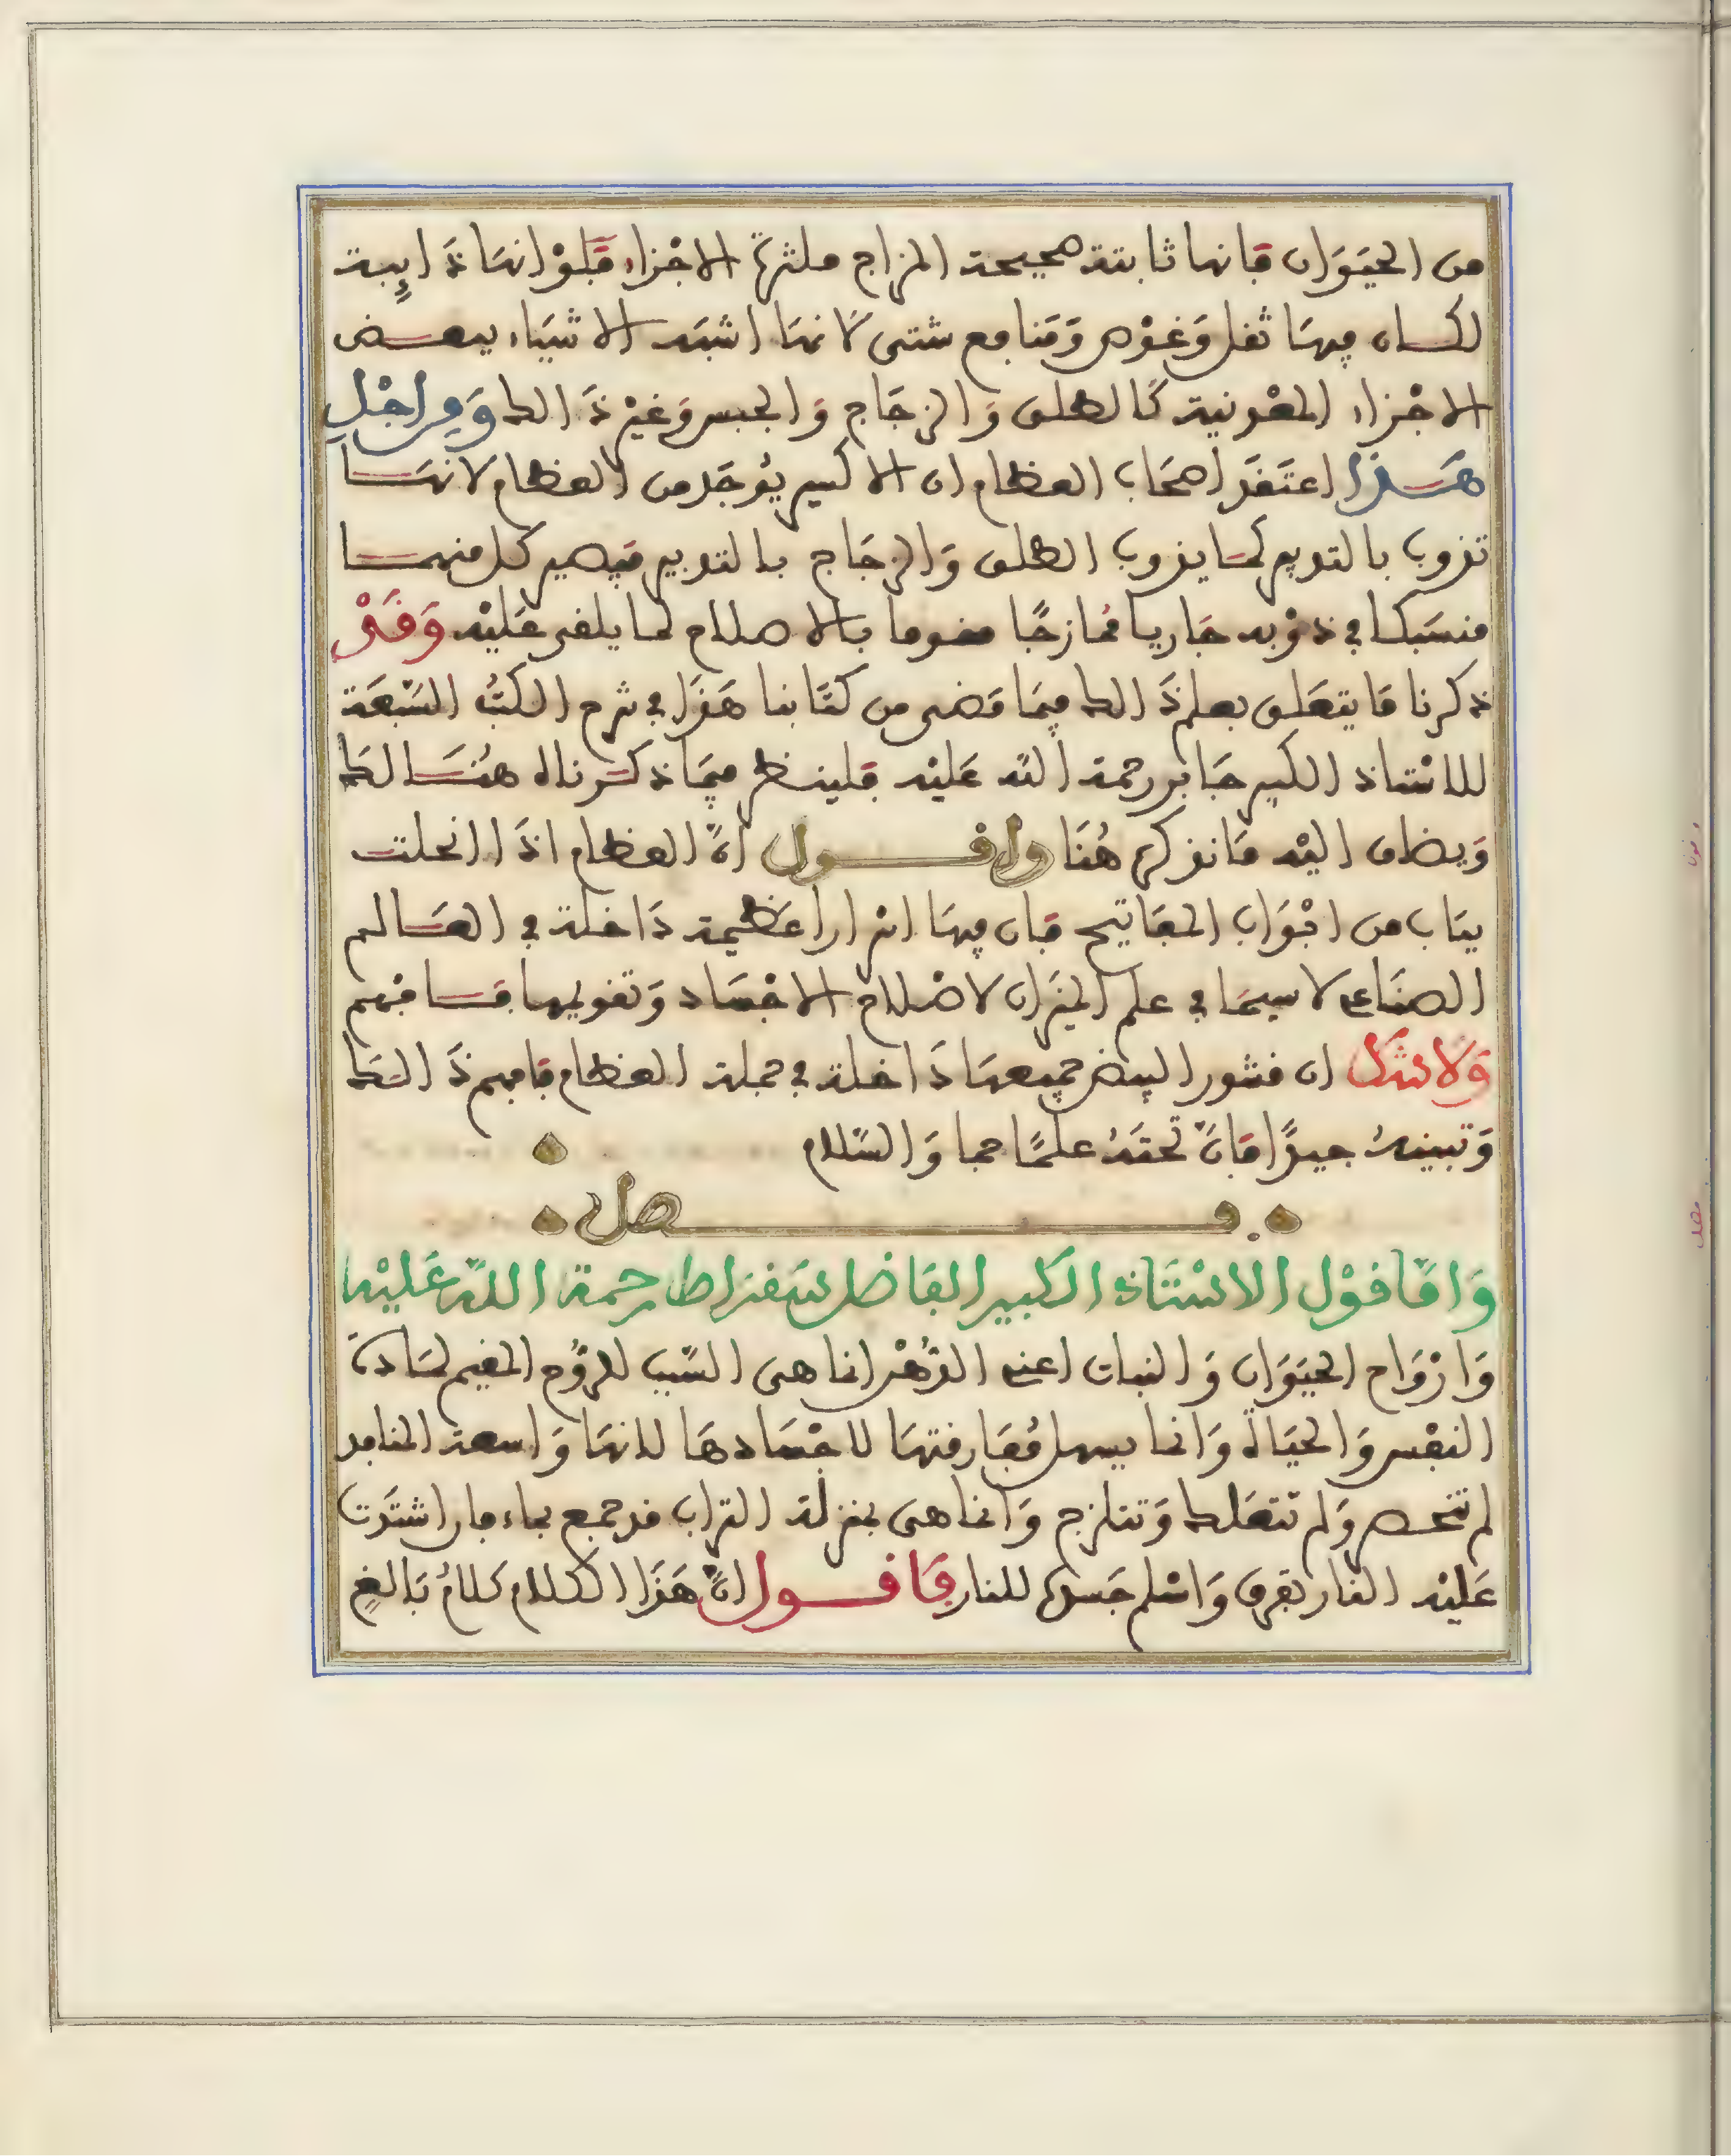 من الحيَوَان فانها ثابتة صحيحة المزاج ملتزة الاجْزاء فَلَوْ انهَا ذَايِبة
لكان فيهَا ثفل وَغوْص وَمَنافع شتى لانهَا اشبَه الاشيَاء ببعض
الاجْزاء المعْدنية كَالطلق وَالزجَاج وَالجبس وَغيْر ذَالك وَمِن اجْلِ
هَـذا اعتَقَد اصحَاب العظام ان الاكسير يُوجَد من العظام لانهَا
تذوب بالتدبير كمَا يذوب الطلق وَالزجَاج بالتدبير فيَصير كل منهمَا
منسَبكا في ذوْبه جَاريا مُمَازجًا مقوما بالاصلاح لما يلقى عَليْه وَقَدْ
ذكرنا مَا يتعَلق بعلم ذَالك فيمَا مَضى من كتَابنا هَذَا في شرح الكتُب السّبْعَة
للاسْتاذ الكبير جَابر رحمة اللّه عَليْه فلينظر فيمَا ذكـرناه هنَـالك
وَيضاف اليْه مَا نذكره هُنَا وَاقـول انّ العظام اذَا انحلت
ببَاب من ابْوَاب المفَاتيح فان فيهَا اسْرارا عَظيمة دَاخلة في العَالم
الصنَاعي لا سيمَا في علم الميزان لاصْلاح الاجْسَاد وَتقويمها فـافْهم
وَلَا شَك ان قشور البيض جميعهَا دَاخلة في جملة العظام فافهم ذَالك
وَتبينهُ جيدًا فَانّ تحتَهُ علمًا جما وَالسّلام
فـصل
وَامّا قوْل الاسْتَاذ الكبير الفَاضل سَقرَاط رحمة اللّه عَليْه
وَارْوَاح الحيَوَان وَالنبات اعني الدُّهْن انما هى السّبب للرّوُح المقيم لمَادة
النفْس وَالحيَاة وَانما يسهل مُفَارقتهَا لاجْسَادهَا لانهَا وَاسعة المنافذ
لم تنحصر وَلم تتعَلك وَتتلزج وَانما هى بمنزلة التراب قد جمع بماء فان اشتدَت
عَليْه النار تفرق وَاسْلم جَسده للنار فَاقـول انّ هَذَا الكلام كلامٌ بَالغٍ